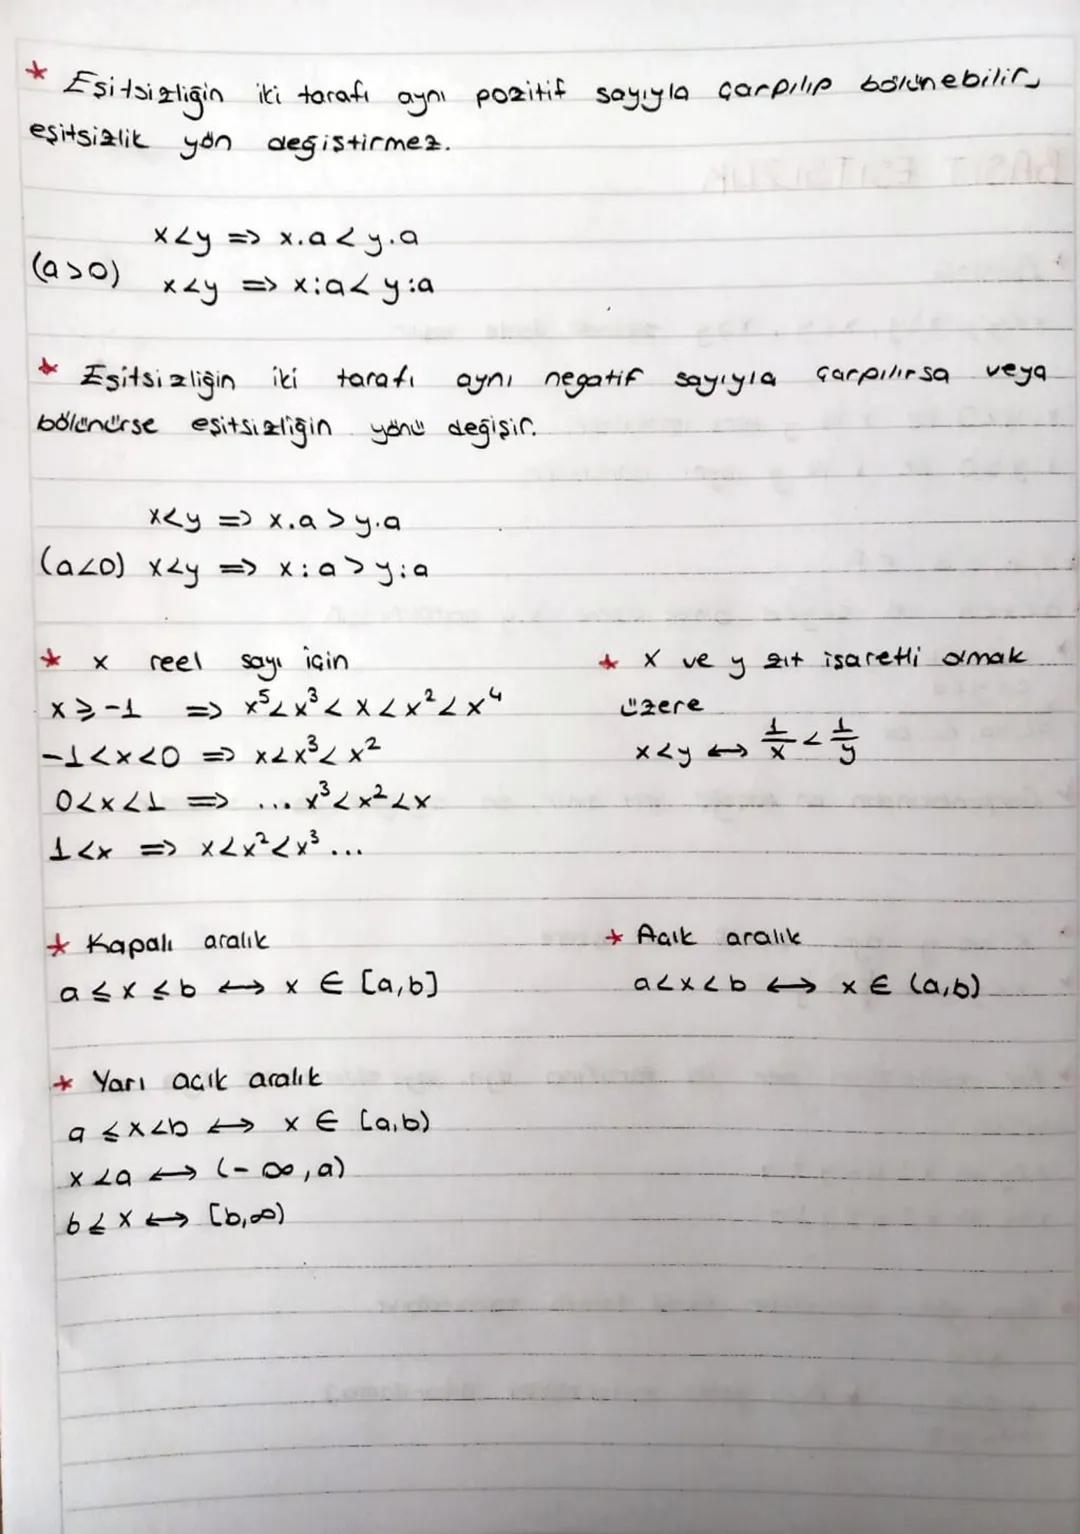 * Eşitsizliğin iki tarafı aynı pozitif sayıyla çarpılıp bölünebilir,
eşitsizlik yön değiştirmez.
x<y => x.a < y.a
(a>0)
x<y => x:a < y:a
* Eşitsizliğin iki tarafı aynı negatif sayıyla çarpılırsa veya
bölünürse eşitsizliğin yönü değişir.
x<y => x.a > y.a
(a<0) x<y => x:a > y:a
* x reel sayı için
x ≥ -1 => x⁵<x³<x<x²<x⁴
-1<x<0 => x<x³<x²
0<x<1 => ... x³<x²<x
1<x => x<x²<x³...
* x ve y zıt işaretli olmak
üzere
x<y ↔ 1/x < 1/y
* Kapalı aralık
a ≤ x ≤ b ↔ x ∈ [a,b]
* Açık aralık
a<x<b ↔ x ∈ (a,b)
* Yarı açık aralık
a ≤ x<b ↔ x ∈ [a,b)
x<a ↔ (-∞,a)
b ≤ x ↔ [b,∞)